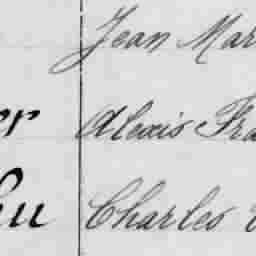 Jean Mar
er Alexis Fra
eu Charles